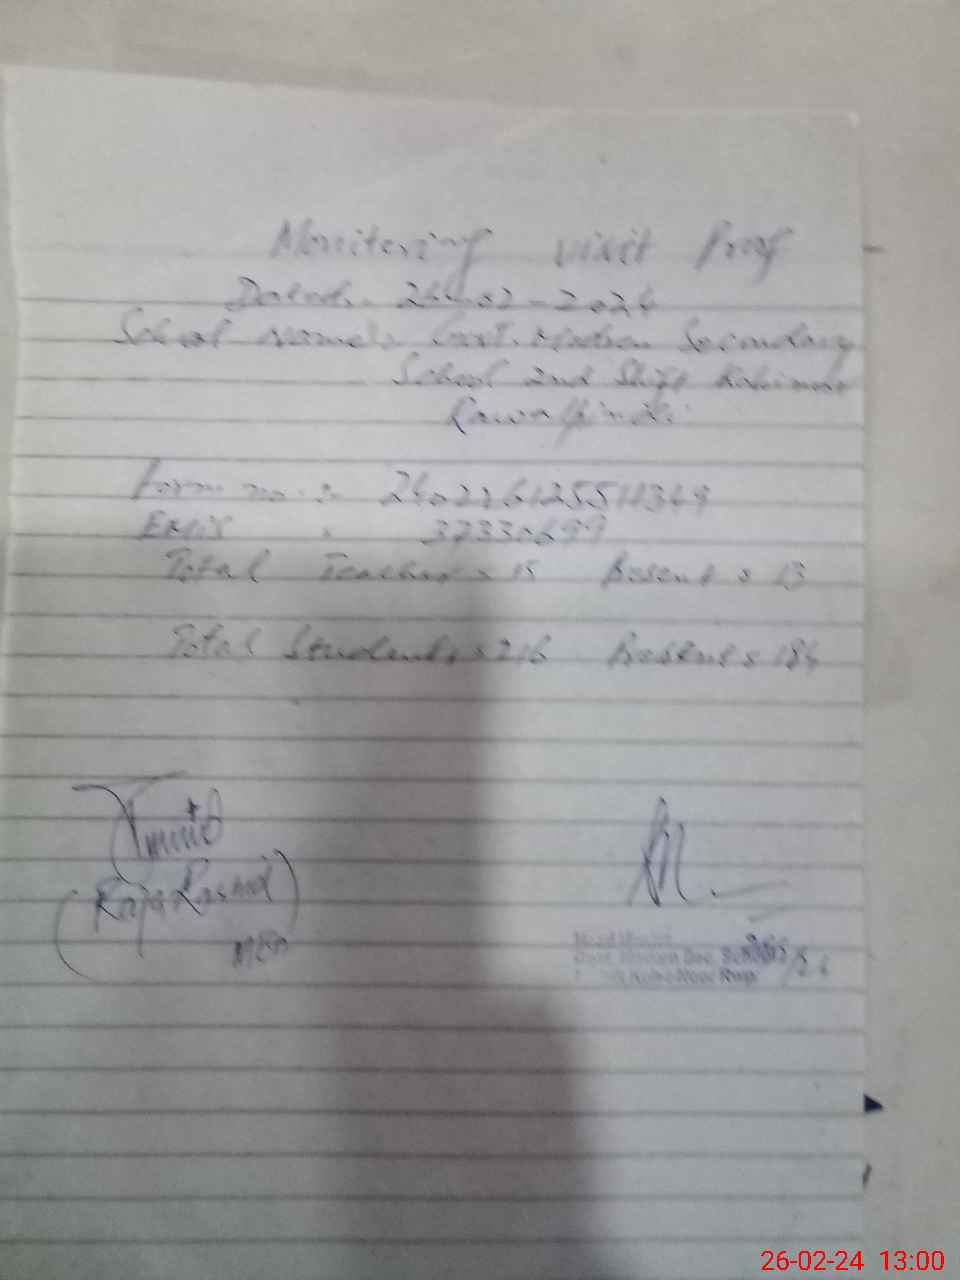 Monitering visit Prof
Dated:- 26-02-2024
School Name:- Govt. Modren Secondary
School 2nd Shift Kohinoor
Rawalpindi
Form no :- 
EMIS : 37330699
Total Teacher = 15 Present = 13
Total Students = 216 Present = 184
(Raja Rashid)
MEA
Head Master
Govt. Modern Sec. School
Kohe-Noor Rwp.
26-02-24 13:00